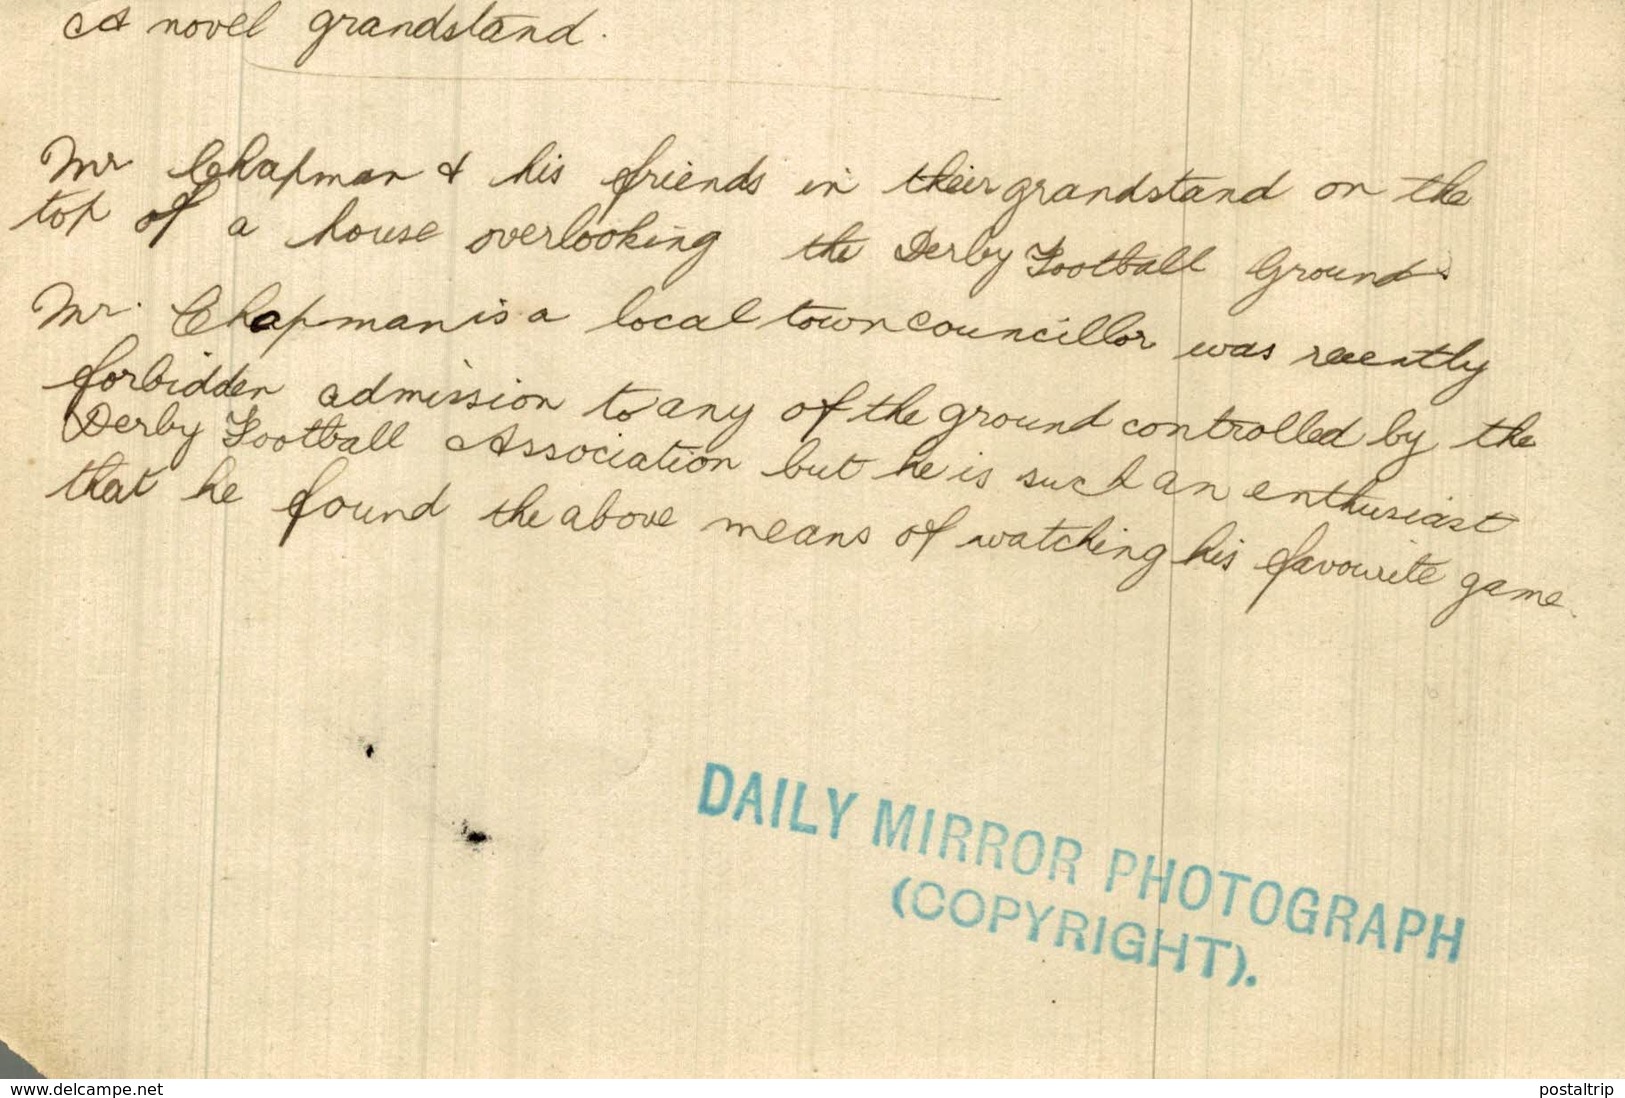 A novel grandstand.
Mr Chapman & his friends in their grandstand on the
top of a house overlooking the Derby Football Ground.
Mr. Chapman is a local town councillor was recently
forbidden admission to any of the ground controlled by the
Derby Football Association but he is such an enthusiast
that he found the above means of watching his favourite game.
DAILY MIRROR PHOTOGRAPH
(COPYRIGHT).
www.delcampe.net
postaltrip